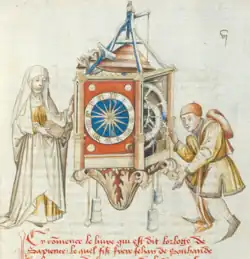 Cy comence le liure qui est dit lorloge de
sapience le quel fist frere Jehan de Souhaude